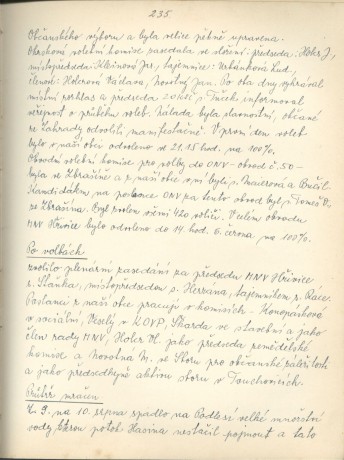 235
Občanského výboru a byla velice pěkně upravena.
Okrsková volební komise zasedala ve složení: předseda: Holer J.,
místopředseda: Kleinová Jar., tajemnice: Urbánková Lud.,
členové: Holcrová Václava, Novotný Jan. Po oba dny vyhrával
místní rozhlas a předseda informoval
veřejnost o průběhu voleb. Nálada byla slavnostní, občané
ze zahrady odvolili manifestačně. V první den voleb
bylo v naší obci odvoleno ve 21.15 hod. na 100%.
Obvodní volební komise pro volby do ONV - obvod č. 50 -
byla ve Zbrašíně a z naší obce v ní byli s. a
Kandidátem na poslance ONV za tento obvod byl s. Tomeš
ze Zbrašína. Byl zvolen všemi 420 voliči. V celém obvodu
MNV Hřivice bylo odvoleno do 14 hod. 6. června na 100%.
Po volbách
zvolilo plenární zasedání za předsedu MNV Hřivice
s. Slánka, místopředsedou s. tajemníkem s.
Poslanci z naší obce pracují v komisích - Konopásková
v sociální, Veselý v KOVP, Škarda ve stavební a jako
člen rady MNV, Holer Vl. jako předseda zemědělské
komise a Novotná M. ve Sboru pro občanské záležitosti
a jako předsedkyně aktivu sboru v Touchovicích.
Průtrž mračen
Z 9. na 10. srpna spadlo na Podlesí velké množství
vody, potok Hasina nestačil pojmout a tato